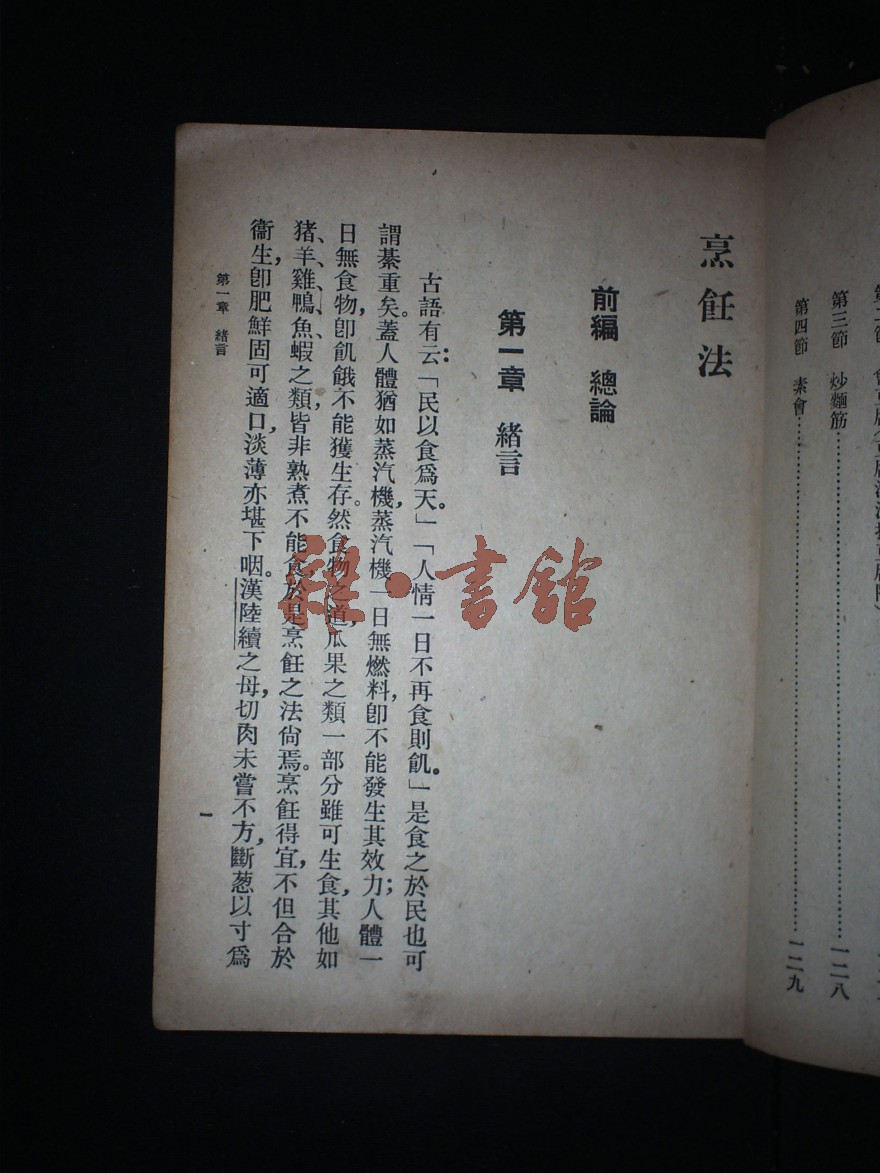 第三節　炒麵筋……………一二八
第四節　素會……………一二九
烹飪法
前編　總論
第一章　緒言
古語有云：「民以食爲天。」「人情一日不再食則飢。」是食之於民也可
謂綦重矣。蓋人體猶如蒸汽機，蒸汽機一日無燃料，卽不能發生其效力；人體一
日無食物，卽飢餓不能獲生存。然食物之道，瓜果之類一部分雖可生食，其他如
猪、羊、雞、鴨、魚、蝦之類，皆非熟煮不能食，於是烹飪之法尙焉。烹飪得宜，不但合於
衞生，卽肥鮮固可適口，淡薄亦堪下咽。漢陸續之母，切肉未嘗不方，斷葱以寸爲
第一章　緒言
一
雅·書館